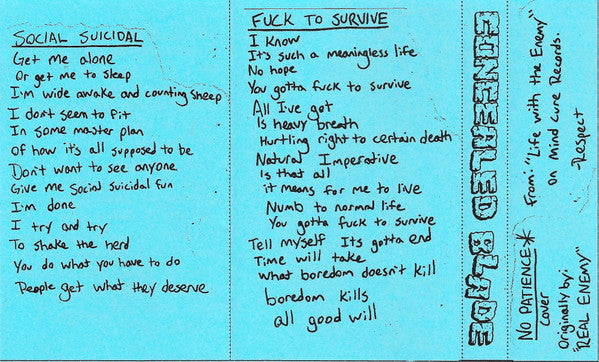 SOCIAL SUICIDAL
Get me alone
Or get me to sleep
I'm wide awake and counting sheep
I don't seem to fit
In some master plan
Of how it's all supposed to be
Don't want to see anyone
Give me social suicidal fun
I'm done
I try and try
To shake the herd
You do what you have to do
People get what they deserve
FUCK TO SURVIVE
I know
It's such a meaningless life
No hope
You gotta fuck to survive
All I've got
Is heavy breath
Hurtling right to certain death
Natural Imperative
Is that all
it means for me to live
Numb to normal life
You gotta fuck to survive
Tell myself Its gotta end
Time will take
what boredom doesn't kill
boredom kills
all good will
CONCEALED BLADE
From: "Life with the Enemy"
on Mind Cure Records.
-Respect
NO PATIENCE*
cover
Originally by:
"REAL ENEMY"